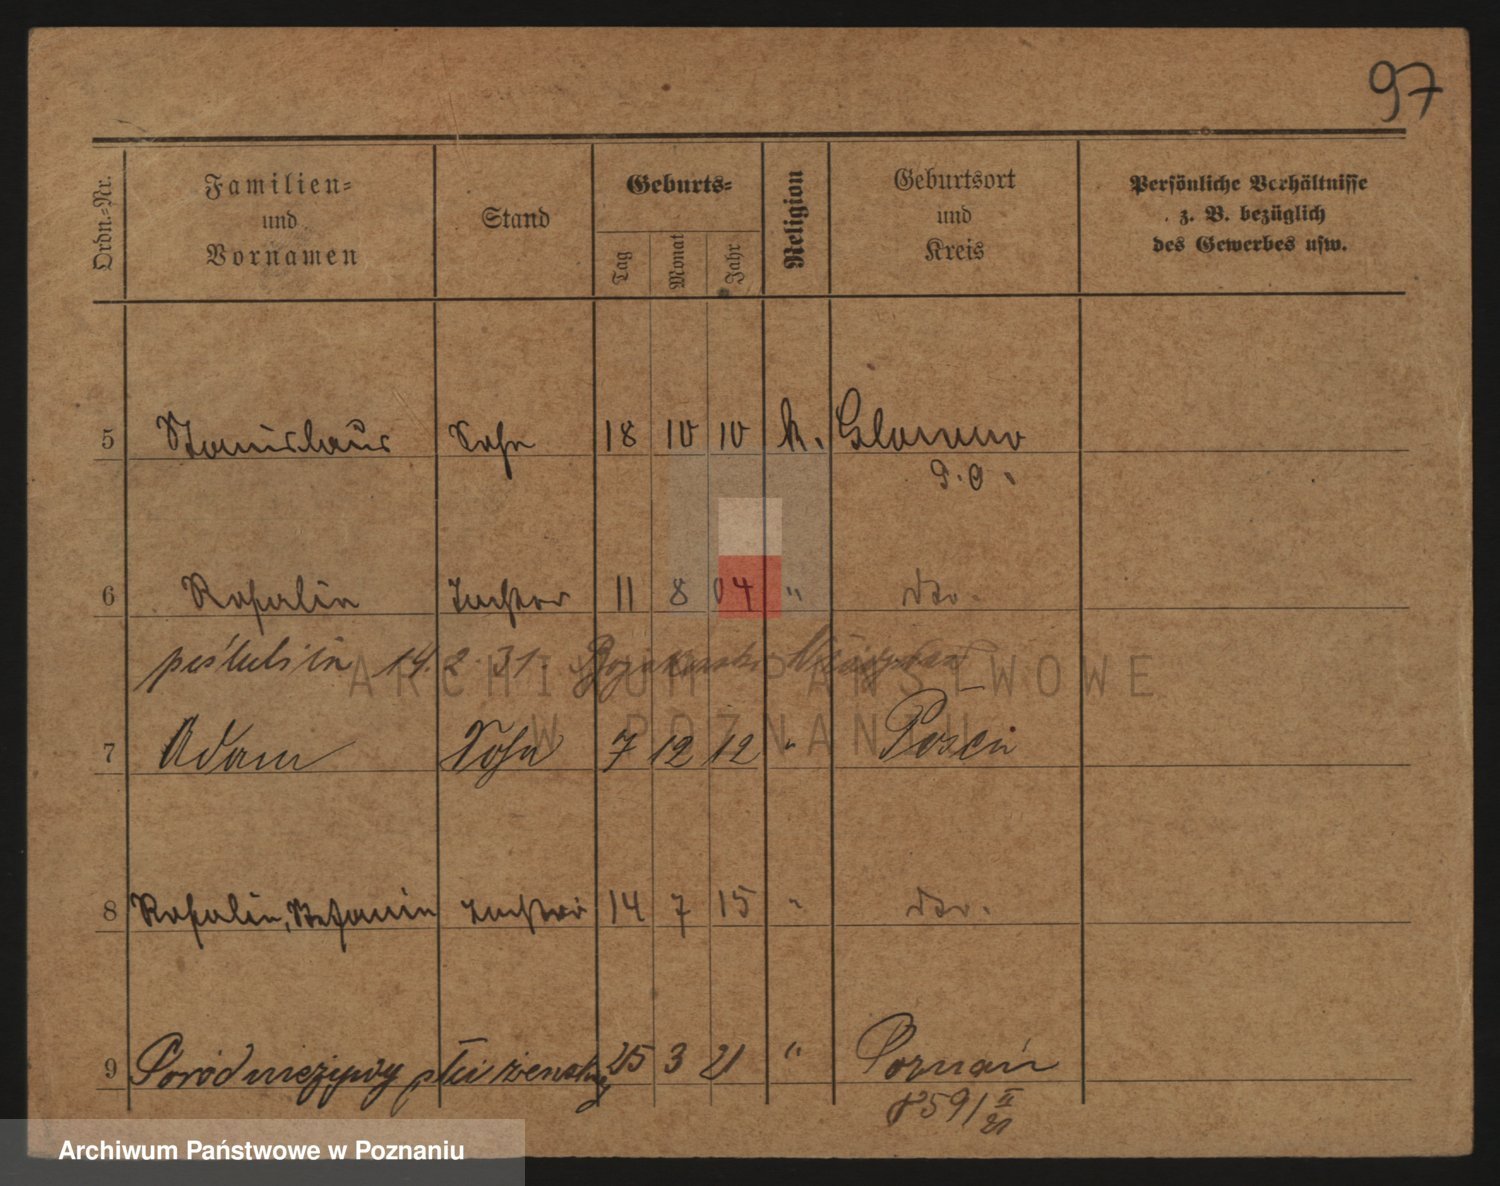 97
Ordn.-Nr.
Familien-
und
Vornamen
Stand
Geburts-
Tag
Monat
Jahr
Religion
Geburtsort
und
Kreis
Persönliche Verhältnisse
z. B. bezüglich
des Gewerbes usw.
5 Stanislaus Sohn 18 10 10 k. Glowno
P. O.
6 Rosalie Tochter 11 8 04 " dto.
poślubiła 14. 2. 31.
7 Adam Sohn 7 12 12 "
8 Rosalie, Stefanie Tochter 14 7 15 " dto.
9 Poród nieżywy płci żeńskiej 25 3 21 " Poznań
859/ II
21
ARCHIWUM PAŃSTWOWE
W POZNANIU
Archiwum Państwowe w Poznaniu